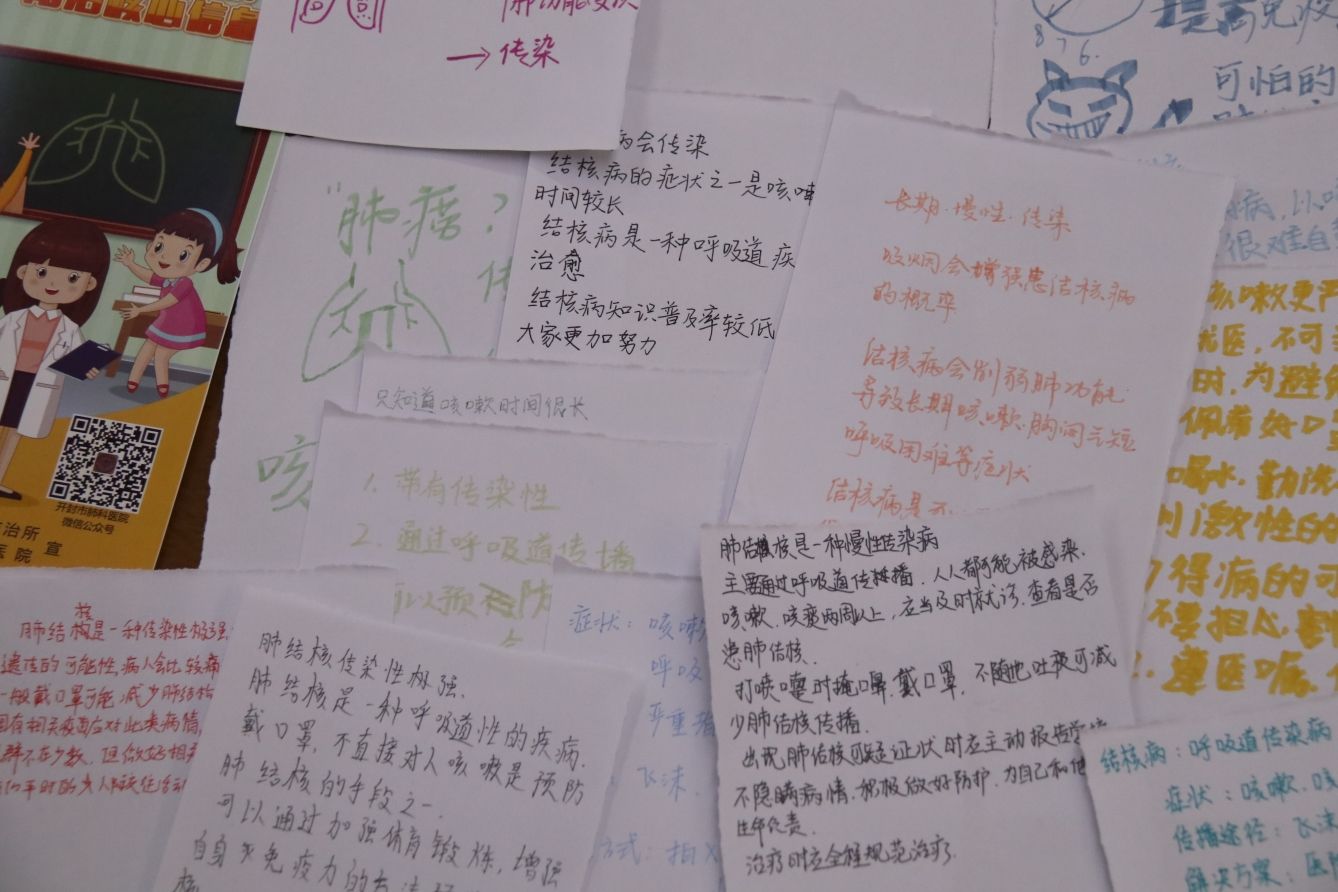 防治核心信息
开封市肺科医院
微信公众号
治所
医院 宣
肺功能受损
→传染
提高免疫
8 7 6.
可怕的
"肺痨?
咳
病会传染
结核病的症状之一是咳嗽
时间较长
结核病是一种呼吸道疾
治愈
结核病知识普及率较低
大家更加努力
长期.慢性.传染
吸烟会增强患结核病
的概率
结核病会削弱肺功能
导致长期咳嗽.胸闷气短
呼吸困难等症状
结核病是
很难自
咳嗽更严
就医,不可
时,为避免
佩带好口罩
喝水,勤洗
激性的
得病的可
不要担心,
遵医嘱.
只知道咳嗽时间很长
1. 带有传染性
2. 通过呼吸道传播
可以预防
症状:咳嗽
呼吸
严重者
飞沫.
方式:
肺结核是一种传染性极强
遗传的可能性,病人会比较痛
一般戴口罩可能减少肺结核
国有相关疫苗应对此类病情,
群不在少数,但做好相关
肺结核传染性极强.
肺结核是一种呼吸道性的疾病.
戴口罩,不直接对人咳嗽是预防
肺结核的手段之一.
可以通过加强体育锻炼,增强
自身免疫力的方法
肺结核是一种慢性传染病
主要通过呼吸道传播.人人都可能被感染.
咳嗽.咳痰两周以上,应当及时就诊.查看是否
患肺结核.
打喷嚏时掩口鼻.戴口罩,不随地吐痰可减
少肺结核传播.
出现肺结核可疑症状时应主动报告学校
不隐瞒病情.积极做好防护.为自己和他
生命负责.
治疗时应全程规范治疗.
结核病:呼吸道传染病
症状:咳嗽.咳
传播途径:飞沫
解决方案:医